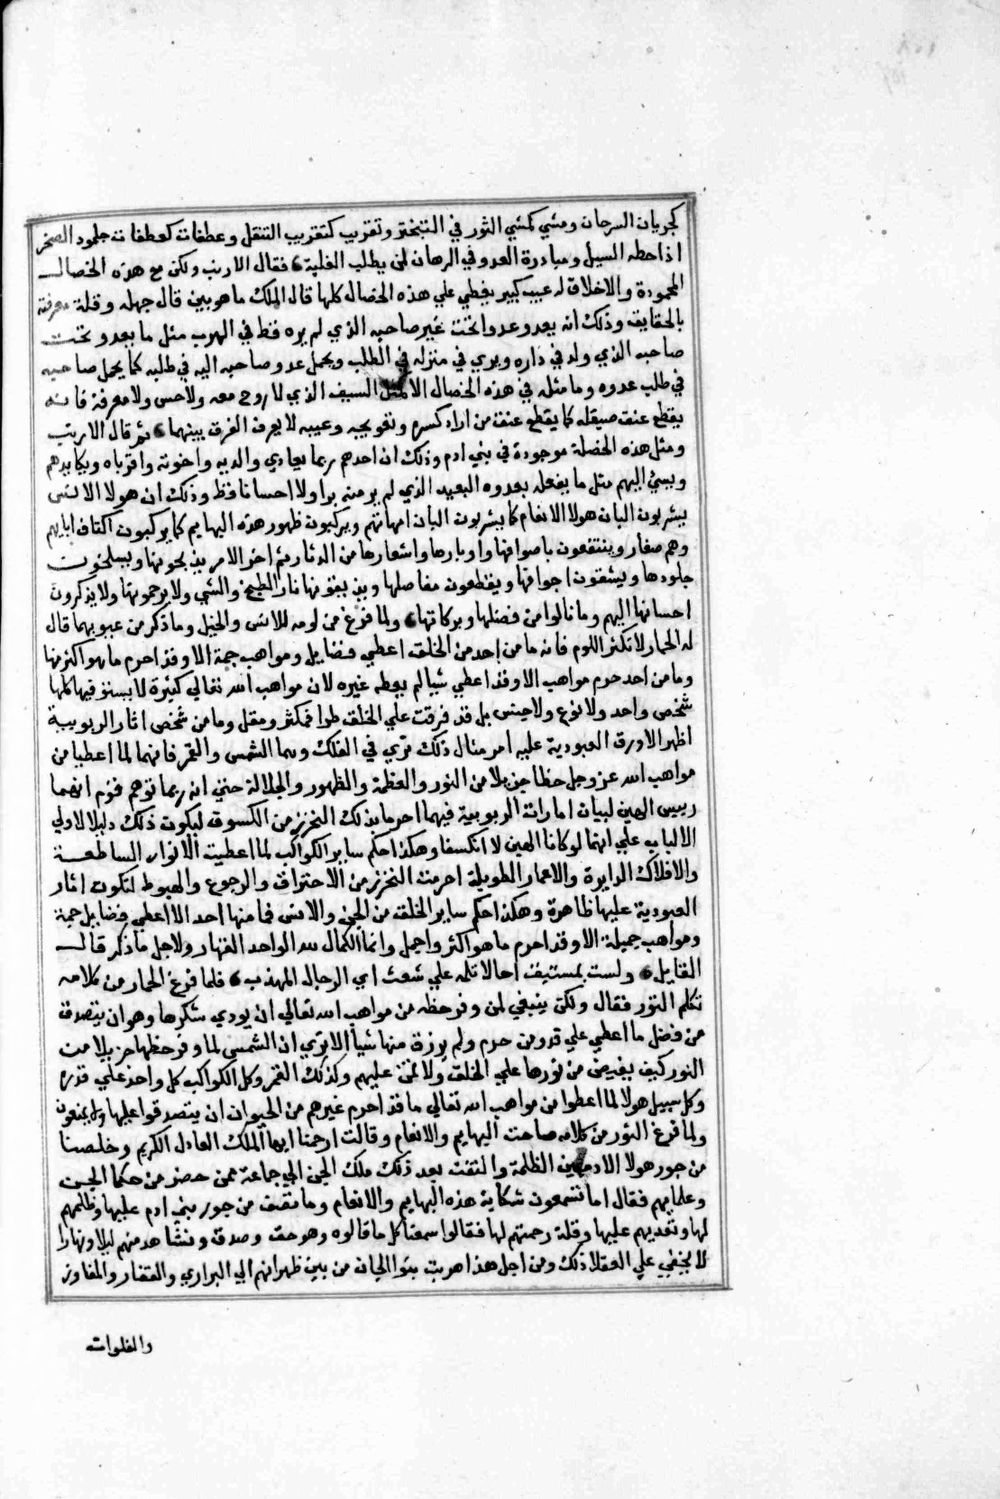 كجريان السرحان ومشي كمشي الثور في التبختر وتقريب كتقريب التتفل وعطفات كعطفات جلمود الصخر
اذا حطه السيل ومبادرة العدو في الرهان لمن يطلب الغلبة فقال الارنب ولكن مع هذه الخصال
المحمودة والاخلاق له عيب كبير يغطي علي هذه الخصال كلها قال الملك ما هو بين قال جهله وقلة معرفته
بالحقايق وذلك انه يعدو عدوا تحت غير صاحبه الذي لم يره قط في الهرب مثل ما يعدو تحت
صاحبه الذي ولد في داره وربي في منزله في الطلب ويحمل عدو صاحبه اليه في طلبه كما يحمل صاحبه
في طلب عدوه وما مثله في هذه الخصال الا كمثل السيف الذي لا روح معه ولا حس ولا معرفة فانه
يقطع عنق صيقله كما يقطع عنق من اراد كسره وتعويجه وعيبه لا يعرف الفرق بينهما ثم قال الارنب
ومثل هذه الخصلة موجودة في بني ادم وذلك ان احدهم ربما يعادي والديه واخوته واقرباه ويكايدهم
ويسيئ اليهم مثل ما يفعله بعدوه البعيد الذي لم ير منه برا ولا احسانا قط وذلك ان هولا الانس
يشربون البان هولا الانعام كما يشربون البان امهاتهم ويركبون ظهور هذه البهايم كما يركبون اكتاف ابايهم
وهم صغار وينتفعون باصوافها واوبارها واشعارها من الدثار ثم اخر الامر يذبحونها ويسلخون
جلودها ويشقون اجوافها ويقطعون مفاصلها ويذيقونها نار الطبخ والشي ولا يرحمونها ولا يذكرون
احسانها اليهم وما نالوا من فضلها وبركاتها ولما فرغ من لومه للانس والخيل وما ذكر من عيوبهما قال
له الحمار لا تكثر اللوم فانه ما من احد من الخلق اعطي فضايل ومواهب جمة الا وقد احرم ما هو اكثر منها
وما من احد حرم مواهب الا وقد اعطي شيا لم يعطه غيره لان مواهب الله تعالي كثيرة لا يستوفيها كلها
شخص واحد ولا نوع ولا جنس بل قد فرقت علي الخلق طرا فمكثر ومقل وما من شخص اثار الربوبية
اظهر الا ورق العبودية عليه امر مثال ذلك نري في الفلك وهما الشمس والقمر فانهما لما اعطيا من
مواهب الله عز وجل حظا جزيلا من النور والعظمة والظهور والجلالة حتي انه ربما توهم قوم انهما
ربين الهين لبيان امارات الربوبية فيهما احرما بذلك التحرز من الكسوف ليكون ذلك دليلا لاولي
الالباب علي انهما لو كانا الهين لا انكسفا وهكذا حكم ساير الكواكب لما اعطيت الانوار الساطعة
والافلاك الدايرة والاعمار الطويلة احرمت التحرز من الاحتراق والرجوع والهبوط لتكون اثار
العبودية عليها ظاهرة وهكذا حكم ساير الخلق من الجن والانس فما منها احد الا اعطي فضايل جمة
ومواهب جميلة الا وقد احرم ما هو اكثر واجمل وانما الكمال لله الواحد القهار ولاجل ما ذكر قال
القايل ولست بمستبق اخا لا تلمه علي شعث اي الرجال المهذب فلما فرغ الحمار من كلامه
تكلم الثور فقال ولكن ينبغي لمن وفر حظه من مواهب الله تعالي ان يودي شكرها وهو ان يتصدق
من فضل ما اعطي علي قد من حرم ولم يرزق منها شيا الا تري ان الشمس لما وفر حظها جزيلا من
النور كيف يفيض من نورها علي الخلق ولا تمن عليهم وكذلك القمر وكل الكواكب كل واحد علي قدره
وكل سبيل هولا لما اعطوا من مواهب الله تعالي ما قد احرم غيرهم من الحيوان ان يتصدقوا عليها ولا يمنعون
ولما فرغ الثور من كلامه صاحت البهايم والانعام وقالت ارحمنا ايها الملك العادل الكريم وخلصنا
من جور هولا الادميين الظلمة والتفت بعد ذلك ملك الجن الي جماعة ممن حضر من حكما الجن
وعلمايهم فقال اما تسمعون شكاية هذه البهايم والانعام وما تصف من جور بني ادم عليها وظلمهم
لها وتعديهم عليها وقلة رحمتهم لها فقالوا سمعنا كل ما قالوه وهو حق وصدق ونشاهد منهم ليلا ونهارا
لا يخفي علي العقلا ذلك ومن اجل هذا هربت بنوا الجان من بين ظهرانهم الي البراري والقفار والمفاوز
والفلوات